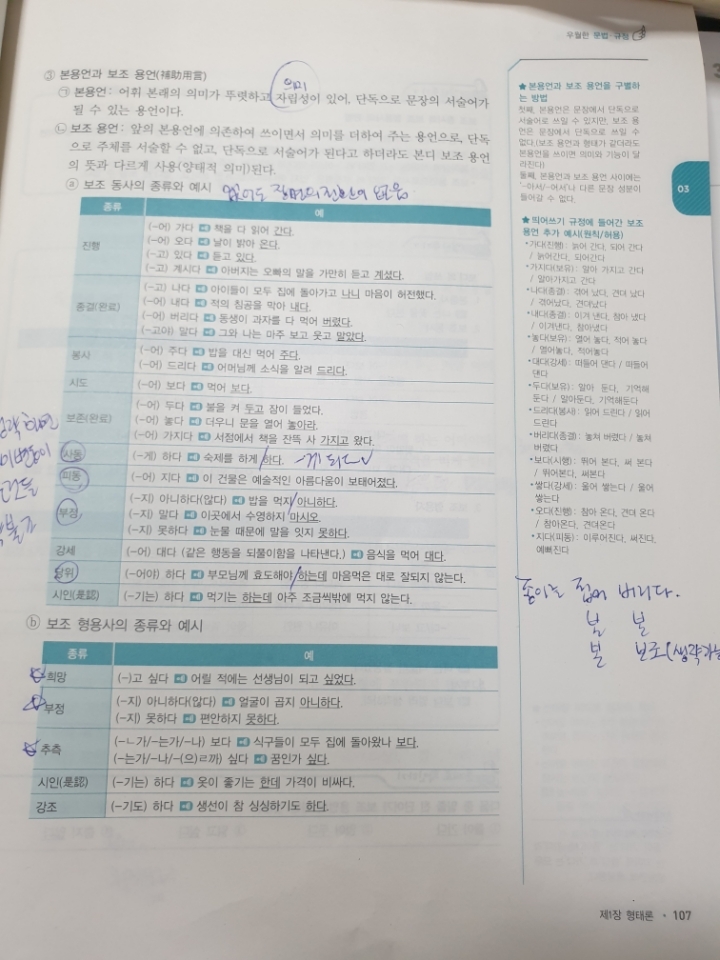 우월한 문법·규정
③ 본용언과 보조 용언(補助用言)
의미
㉠ 본용언: 어휘 본래의 의미가 뚜렷하고 자립성이 있어, 단독으로 문장의 서술어가
될 수 있는 용언이다.
㉡ 보조 용언: 앞의 본용언에 의존하여 쓰이면서 의미를 더하여 주는 용언으로, 단독
으로 주체를 서술할 수 없고, 단독으로 서술어가 된다고 하더라도 본디 보조 용언
의 뜻과 다르게 사용(양태적 의미)된다.
ⓐ 보조 동사의 종류와 예시
종류 예
진행
(-어) 가다 책을 다 읽어 간다.
(-어) 오다 날이 밝아 온다.
(-고) 있다 듣고 있다.
(-고) 계시다 아버지는 오빠의 말을 가만히 듣고 계셨다.
종결(완료)
(-고) 나다 아이들이 모두 집에 돌아가고 나니 마음이 허전했다.
(-어) 내다 적의 침공을 막아 내다.
(-어) 버리다 동생이 과자를 다 먹어 버렸다.
(-고야) 말다 그와 나는 마주 보고 웃고 말았다.
봉사
(-어) 주다 밥을 대신 먹어 주다.
(-어) 드리다 어머님께 소식을 알려 드리다.
시도 (-어) 보다 먹어 보다.
보존(완료)
(-어) 두다 불을 켜 두고 잠이 들었다.
(-어) 놓다 더우니 문을 열어 놓아라.
(-어) 가지다 서점에서 책을 잔뜩 사 가지고 왔다.
사동 (-게) 하다 숙제를 하게 하다. -게 되다
피동 (-어) 지다 이 건물은 예술적인 아름다움이 보태어졌다.
부정
(-지) 아니하다(않다) 밥을 먹지 아니하다.
(-지) 말다 이곳에서 수영하지 마시오.
(-지) 못하다 눈물 때문에 말을 잇지 못하다.
강세 (-어) 대다 (같은 행동을 되풀이함을 나타낸다.) 음식을 먹어 대다.
당위 (-어야) 하다 부모님께 효도해야 하는데 마음먹은 대로 잘되지 않는다.
시인(是認) (-기는) 하다 먹기는 하는데 아주 조금씩밖에 먹지 않는다.
ⓑ 보조 형용사의 종류와 예시
종류 예
희망 (-)고 싶다 어릴 적에는 선생님이 되고 싶었다.
부정
(-지) 아니하다(않다) 얼굴이 곱지 아니하다.
(-지) 못하다 편안하지 못하다.
추측
(-ㄴ가/-는가/-나) 보다 식구들이 모두 집에 돌아왔나 보다.
(-는가/-나/-(으)ㄹ까) 싶다 꿈인가 싶다.
시인(是認) (-기는) 하다 옷이 좋기는 한데 가격이 비싸다.
강조 (-기도) 하다 생선이 참 싱싱하기도 하다.
★본용언과 보조 용언을 구별하
는 방법
첫째, 본용언은 문장에서 단독으로
서술어로 쓰일 수 있지만, 보조 용
언은 문장에서 단독으로 쓰일 수
없다.(보조 용언과 형태가 같더라도
본용언을 쓰이면 의미와 기능이 달
라진다)
둘째, 본용언과 보조 용언 사이에는
'-아서/-어서'나 다른 문장 성분이
들어갈 수 없다.
03
★띄어쓰기 규정에 들어간 보조
용언 추가 예시(원칙/허용)
•가다(진행): 늙어 간다, 되어 간다
/ 늙어간다, 되어간다
•가지다(보유): 알아 가지고 간다
/ 알아가지고 간다
•나다(종결): 겪어 났다, 견뎌 났다
/ 겪어났다, 견뎌났다
•내다(종결): 이겨 낸다, 참아 냈다
/ 이겨낸다, 참아냈다
•놓다(보유): 열어 놓다, 적어 놓다
/ 열어놓다, 적어놓다
•대다(강세): 떠들어 댄다 / 떠들어
댄다
•두다(보유): 알아 둔다, 기억해
둔다 / 알아둔다, 기억해둔다
•드리다(봉사): 읽어 드린다 / 읽어
드린다
•버리다(종결): 놓쳐 버렸다 / 놓쳐
버렸다
•보다(시행): 뛰어 본다, 써 본다
/ 뛰어본다, 써본다
•쌓다(강세): 울어 쌓는다 / 울어
쌓는다
•오다(진행): 참아 온다, 견뎌 온다
/ 참아온다, 견뎌온다
•지다(피동): 이루어진다, 써진다,
예뻐진다
종이는 집어 버리다.
본 본
본 보조(생략가능
제1장 형태론 • 107